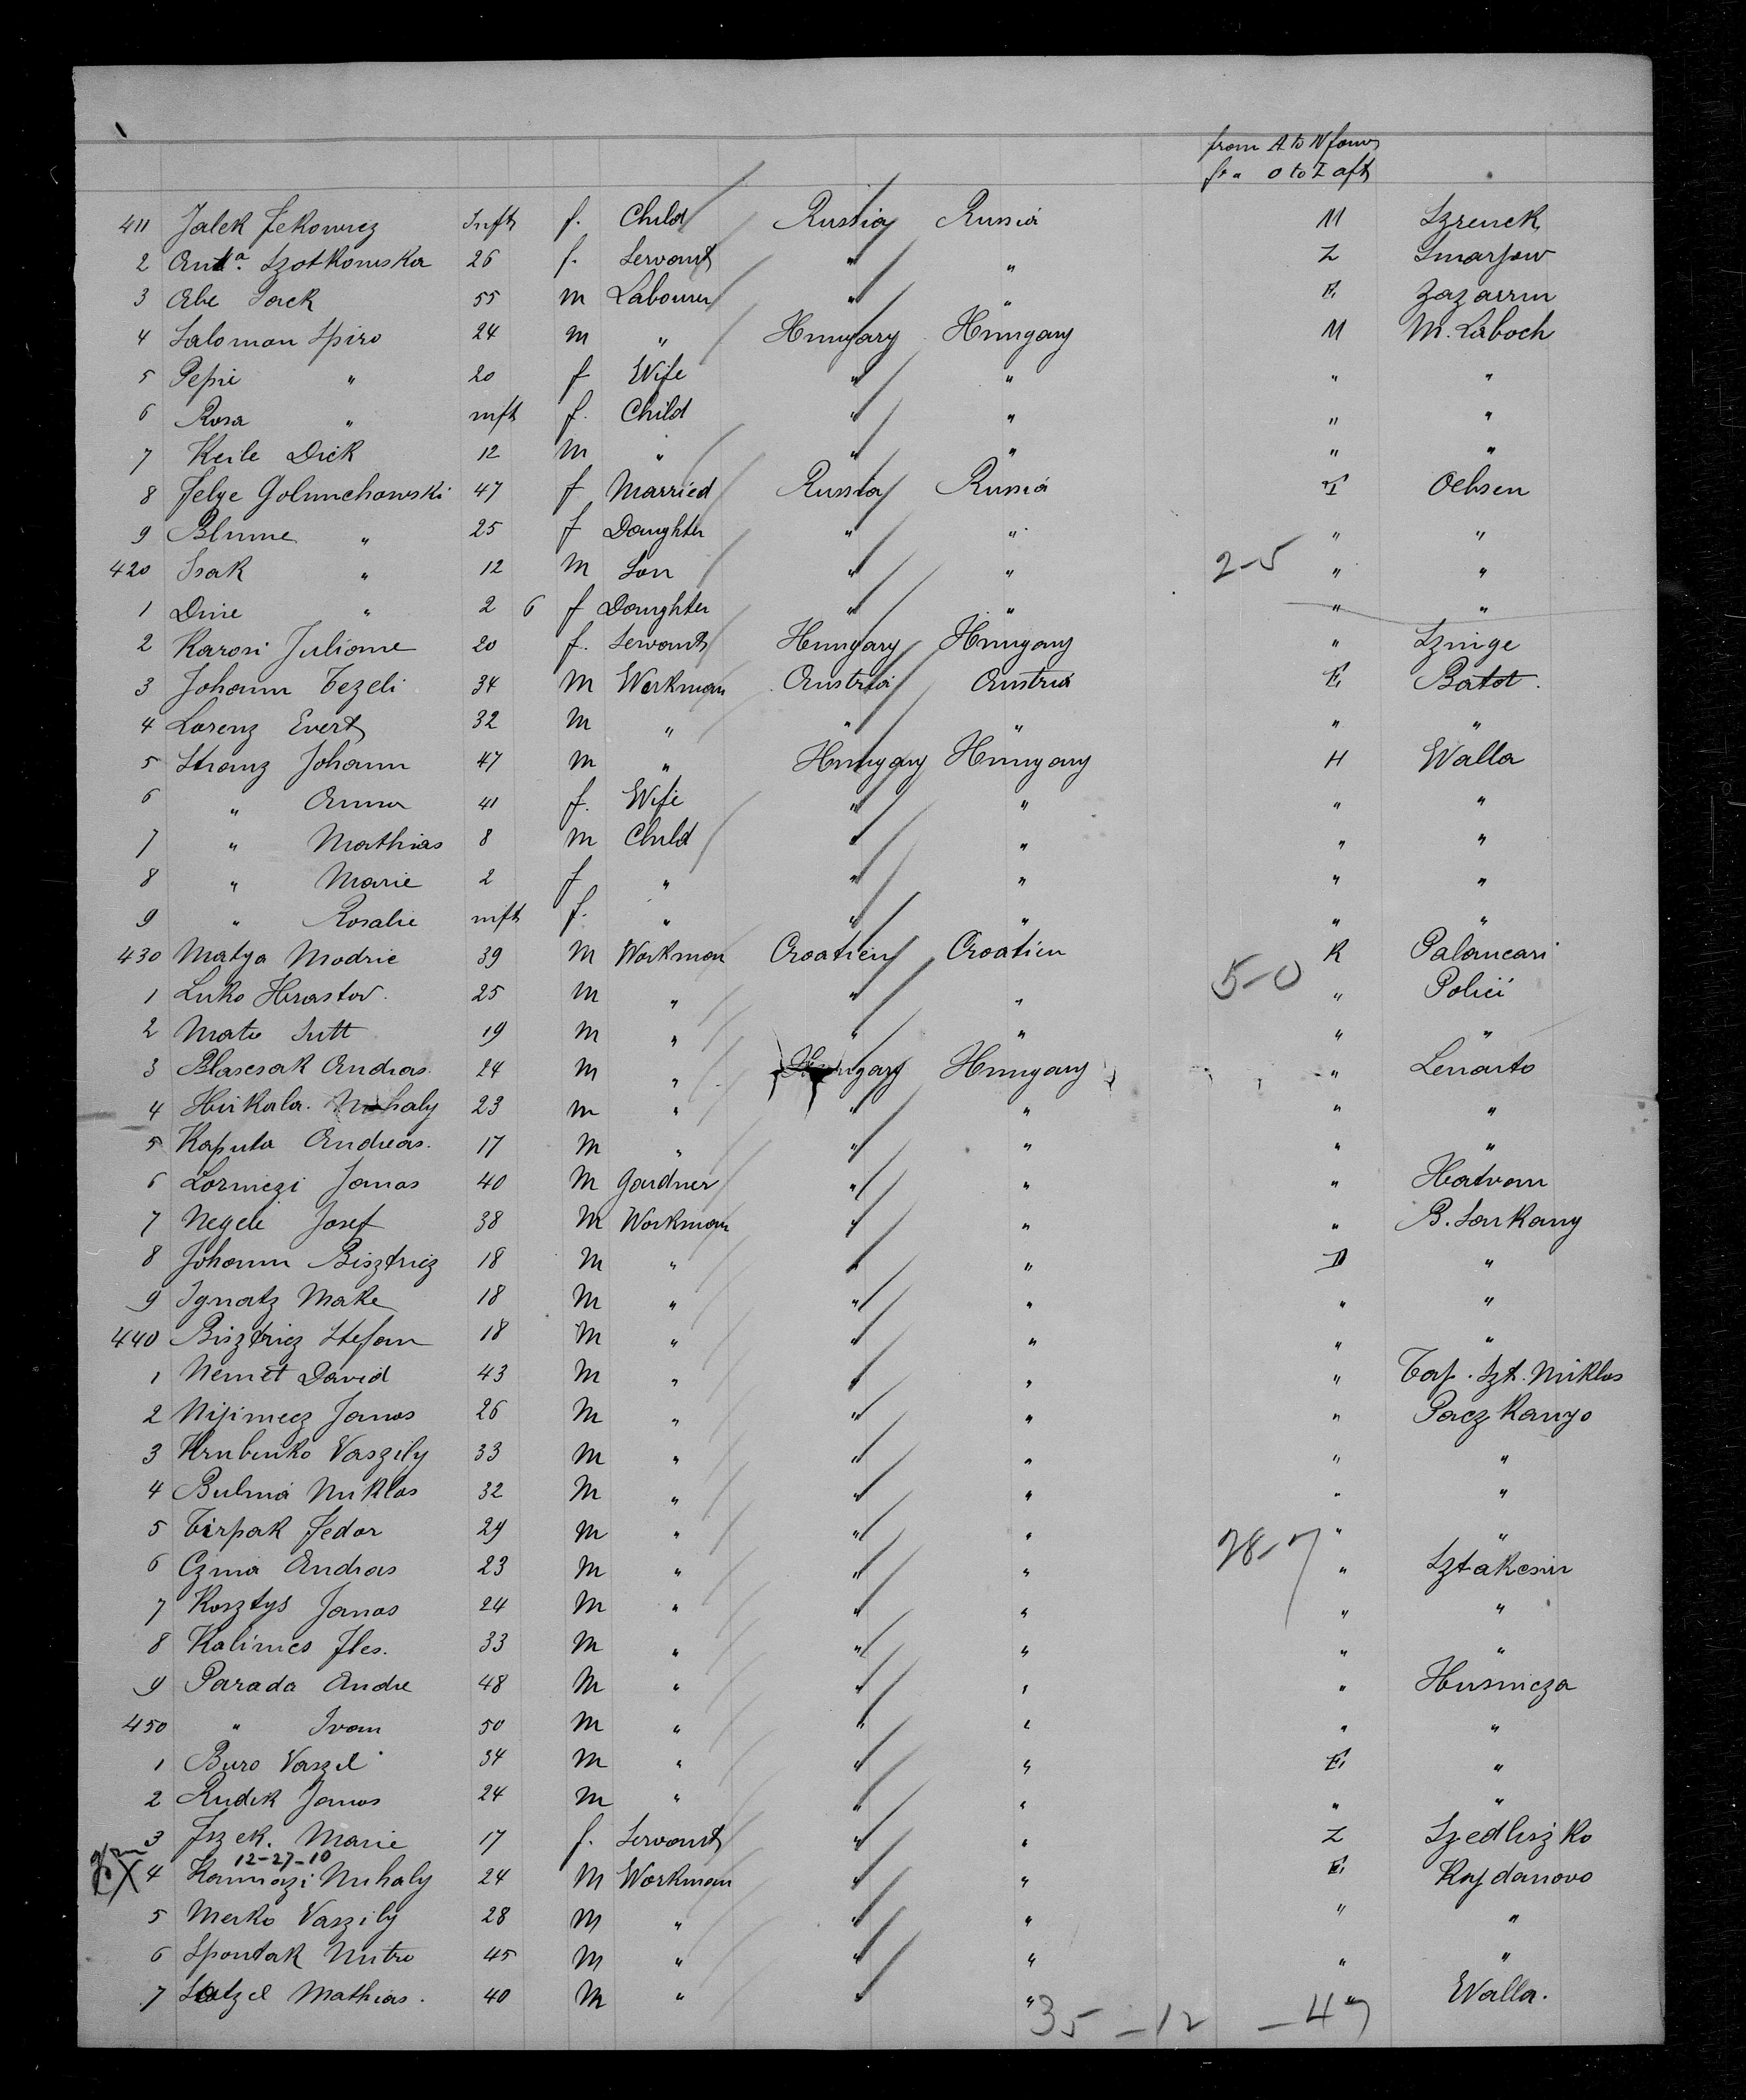 from A to N forw
fr " O to Z aft
411 Jalek Jekowicz Inft f. Child Russia Russia M Szrenck
2 Anta. Szotkowska 26 f. Servant " " Z Smarsow
3 Abe Sack 55 m Labourer " " E
4 Salomon Spiro 24 m " Hungary Hungary M M. Laboch
5 Pepie " 20 f Wife " " " "
6 Rosa " inft f. Child " " " "
7 Keile Dick 12 m " " " " "
8 Felge Golunchowski 47 f Married Russia Russia I Oebsen
9 Blume " 25 f Daughter " " " "
420 Isak " 12 m Son " " 2-5 " "
1 Dine " 2 6 f Daughter " " " "
2 Karosi Juliane 20 f. Servant Hungary Hungary " Szinge
3 Johann Tezeli 34 M Workman Austria Austria E Batot.
4 Lorenz Evert 32 M " " " " "
5 Stranz Johann 47 m " Hungary Hungary H Walla
6 " Anna 41 f. Wife " " " "
7 " Mathias 8 m Child " " " "
8 " Marie 2 f " " " " "
9 " Rosalie inft f. " " " " "
430 Matya Modric 39 M Workman Croatien Croatien K Palancari
1 Luko Hrastov. 25 m " " " 5-0 " Polici
2 Mato Sutt 19 m " " " " "
3 Blascsak Andras. 24 m " Hungary Hungary " Lenarto
4 Hirkala. Mihaly 23 m " " " " "
5 Kaputa Andreas. 17 M " " " " "
6 Lorinczi Janos 40 M Gardner " " " Hatvan
7 Negele Josef 38 M Workman " " " B. Sarkany
8 Johann Bisztricz 18 M " " " D "
9 Ignatz Make 18 M " " " " "
440 Bisztricz Stefan 18 M " " " " "
1 Nemet David 43 M " " " " Taf. Szt. Miklos
2 Nijimecz Janos 26 M " " " " Paczkanyo
3 Hrubinko Vaszily 33 M " " " " "
4 Bulina Miklos 32 M " " " " "
5 Tirpak Fedor 29 M " " " " "
6 Czina Andras 23 M " " " 28-7 " Sztakcsin
7 Kosztys Janos 24 M " " " " "
8 Kalincs Iles. 33 M " " " " "
9 Parada Andre 48 M " " " " Husnicza
450 " Ivan 50 M " " " " "
1 Buro Vaszil 34 M " " " E "
2 Rudik Janos 24 m " " " " "
3 Iszek. Marie 17 f. Servant " " Z Szedliszko
12-27-10
X 4 Mihaly 24 M Workman " " E Kajdanovo
5 Merko Vaszily 28 M " " " " "
6 Spontak Mitro 45 M " " " " "
7 Statzel Mathias. 40 M " " " " Walla.
35 - 12 - 47